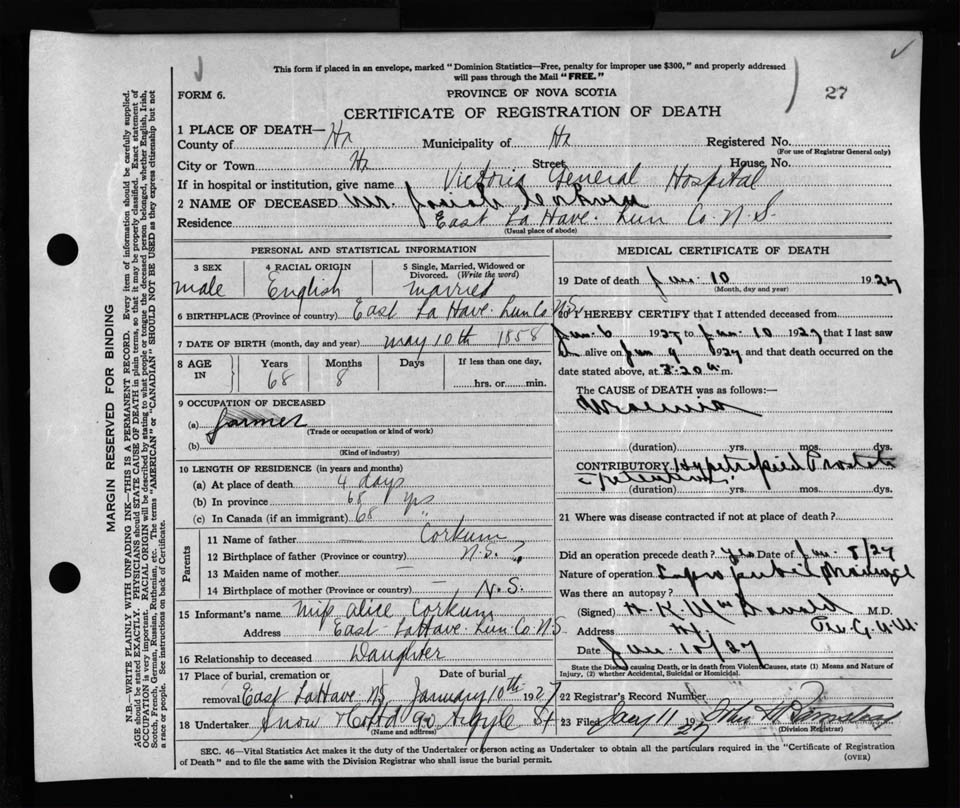 This form if placed in an envelope, marked "Dominion Statistics—Free, penalty for improper use $300," and properly addressed
will pass through the Mail "FREE."
FORM 6.
PROVINCE OF NOVA SCOTIA
27
CERTIFICATE OF REGISTRATION OF DEATH
1 PLACE OF DEATH—
County of Hx Municipality of Hx Registered No.
(For use of Registrar General only)
City or Town Hx Street House, No.
If in hospital or institution, give name Victoria General Hospital
2 NAME OF DECEASED Mr. Josiah Corkum
Residence East La Have. Lun Co N.S.
(Usual place of abode)
PERSONAL AND STATISTICAL INFORMATION
3 SEX 4 RACIAL ORIGIN 5 Single, Married, Widowed or
Divorced. (Write the word)
male English married
6 BIRTHPLACE (Province or country) East La Have. Lun Co N.S.
7 DATE OF BIRTH (month, day and year) may 10th 1858
8 AGE IN Years Months Days If less than one day,
68 8 hrs. or min.
9 OCCUPATION OF DECEASED
(a) farmer
(Trade or occupation or kind of work)
(b)
(Kind of industry)
10 LENGTH OF RESIDENCE (in years and months)
(a) At place of death 4 days
(b) In province 68 yrs
(c) In Canada (if an immigrant) 68 "
Parents
11 Name of father Corkum
12 Birthplace of father (Province or country) N.S. ?
13 Maiden name of mother —
14 Birthplace of mother (Province or country) — N.S.
15 Informant's name miss alice Corkum
Address East LaHave. Lun. Co. N.S
16 Relationship to deceased Daughter
17 Place of burial, cremation or Date of burial
removal East LaHave NS January 10th 1927
18 Undertaker Snow & Co Ltd 90 Argyle St
(Name and address)
MEDICAL CERTIFICATE OF DEATH
19 Date of death Jan. 10 1927
(Month, day and year)
20 I HEREBY CERTIFY that I attended deceased from
Jan. 6 1927 to Jan. 10 1927 that I last saw
him alive on Jan 9 1927 and that death occurred on the
date stated above, at 3.20 a.m.
The CAUSE of DEATH was as follows:—
Uraemia
(duration) yrs. mos. dys.
CONTRIBUTORY Hypertrophied Prostate
retention.
(duration) yrs. mos. dys.
21 Where was disease contracted if not at place of death?
Did an operation precede death? yes Date of Jan. 8/27
Nature of operation Suprapubic drainage
Was there an autopsy?
(Signed) H. K. MacDonald M.D.
Address Hx
Date Jan. 10/27
State the Disease causing Death, or in death from Violent Causes, state (1) Means and Nature of
Injury, (2) whether Accidental, Suicidal or Homicidal.
22 Registrar's Record Number
23 Filed Jany 11 1927 John
(Division Registrar)
SEC. 46—Vital Statistics Act makes it the duty of the Undertaker or person acting as Undertaker to obtain all the particulars required in the "Certificate of Registration
of Death" and to file the same with the Division Registrar who shall issue the burial permit.
(OVER)
MARGIN RESERVED FOR BINDING
N.B.—WRITE PLAINLY WITH UNFADING INK—THIS IS A PERMANENT RECORD. Every item of information should be carefully supplied.
AGE should be stated EXACTLY. PHYSICIANS should STATE CAUSE OF DEATH in plain terms, so that it may be properly classified. Exact statement of
OCCUPATION is very important. RACIAL ORIGIN will be described by stating to what people or tongue the deceased person belonged, whether English, Irish,
Scotch, French, German, Russian, Ruthenian, etc. The terms "AMERICAN" or "CANADIAN" SHOULD NOT BE USED as they express citizenship but not
a race or people. See instructions on back of Certificate.